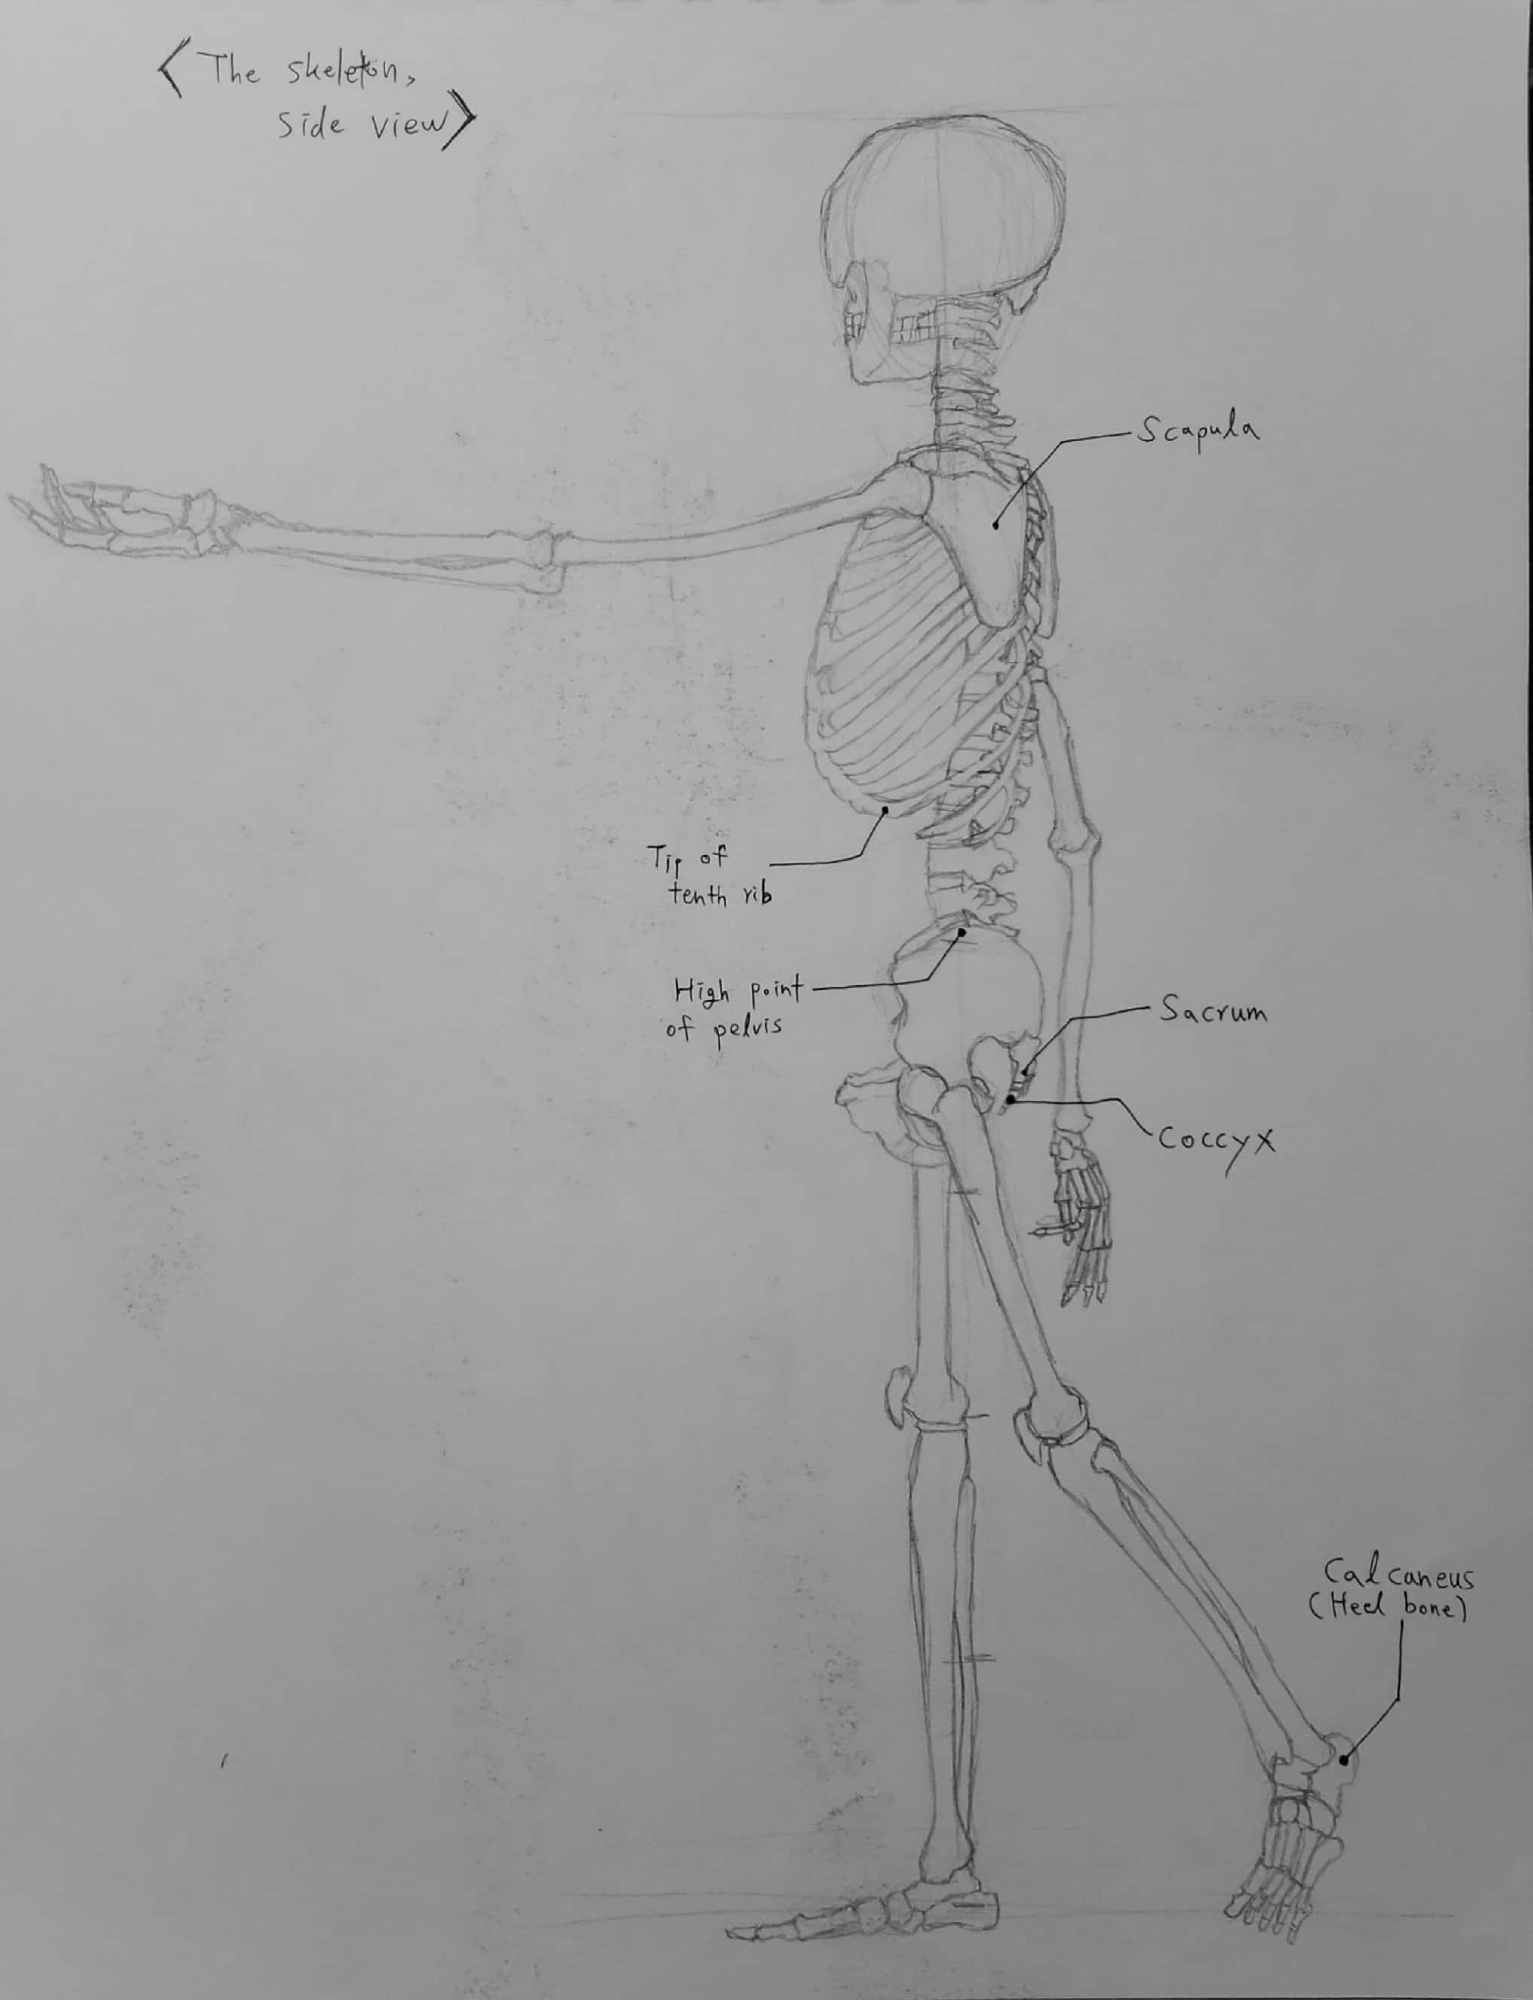 <The skeleton,
side view>
Scapula
Tip of
tenth rib
High point
of pelvis
Sacrum
Coccyx
Calcaneus
(Heel bone)